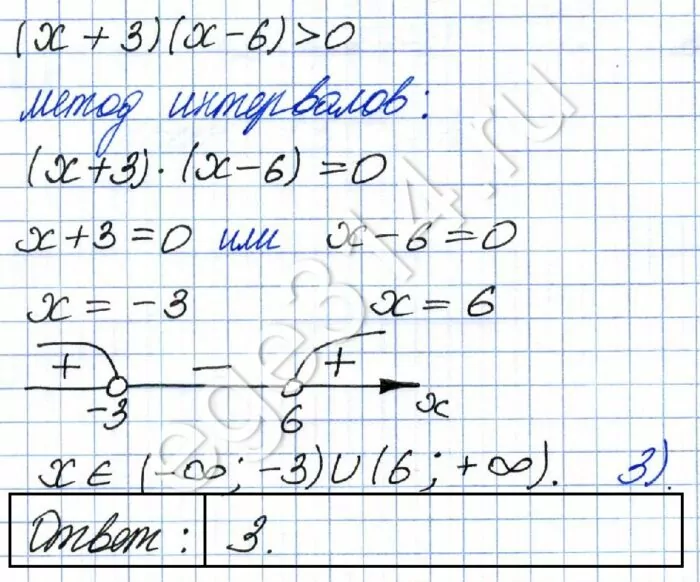 (x + 3)(x - 6) > 0
метод интервалов:
(x+3)·(x-6) = 0
x+3=0 или x-6=0
x = -3 x = 6
+ - +
-3 6 x
x ∈ (-∞; -3) ∪ (6; +∞). 3).
Ответ: 3.
ege314.ru